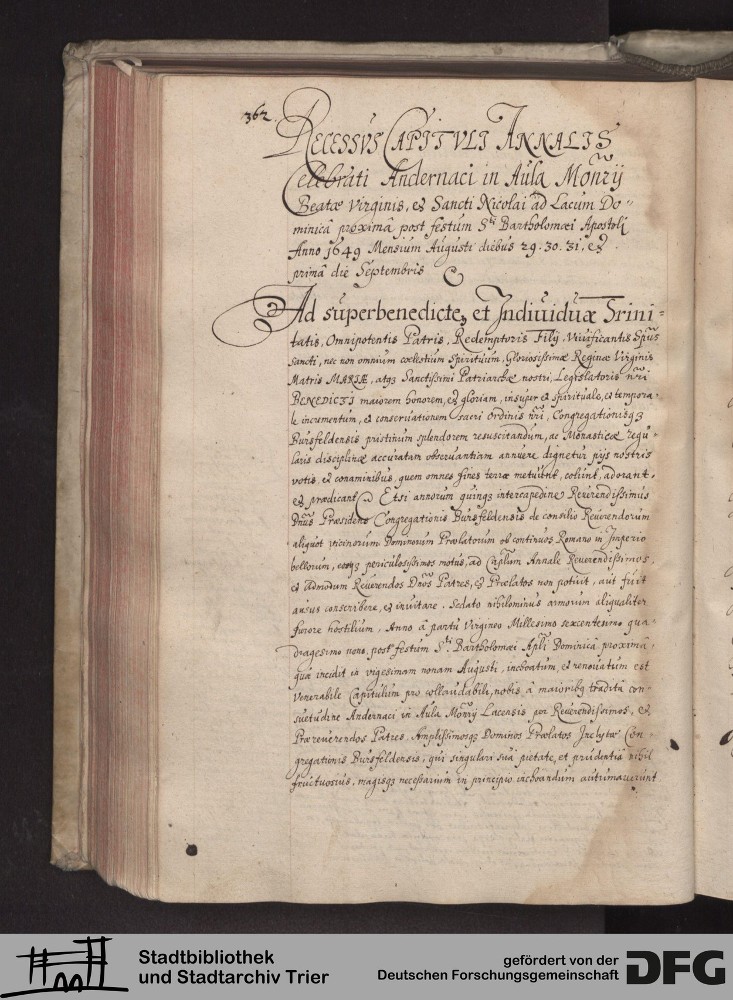 362.
RECESSVS CAPITVLI ANNALIS
Celebrati Andernaci in Aula Monrij
Beatæ Virginis, et Sancti Nicolai ad Lacum Do=
minicâ proximâ post festum Sti Bartholomæi Apostoli
Anno 1649 Mensium Augusti diebus 29. 30. 31. et
primâ die Septembris
Ad superbenedictę, et Indiuiduæ Trini=
tatis, Omnipotentis Patris, Redemptoris Filij, Viuificantis Spūs
sancti, nec non omnium cœlestium spirituum, Gloriosissimæ Reginæ Virginis
Matris MARIÆ, atqz Sanctissimi Patriarchæ nostri, Legislatoris nrī
BENEDICTI maiorem honorem, et gloriam, insuper et spirituale, et tempora=
le incrementum, et conseruationem sacri ordinis nrī, Congregationisqz
Bursfeldensis pristinum splendorem resuscitandum, ac Monasticæ regu=
laris disciplinæ accuratam obseruantiam annuere dignetur pijs nostris
votis, et conaminibus, quem omnes fines terræ metuunt, colunt, adorant,
et prædicant. Etsi annorum quinqz intercapedine Reuerendissimus
Dnūs Præsidens Congregationis Bursfeldensis de consilio Reuerendorum
aliquot vicinorum Dominorum Prælatorum ob continuos Romano in Imperio
bellorum, eosqz periculosissimos motus, ad Caplum Annale Reuerendissimos,
et Admodum Reuerendos Dnos Patres, et Prælatos non potuit, aut fuit
ausus conscribere, et inuitare. Sedato nihilominus armorum aliqualiter
furore hostilium, Anno â partu Virgineo Millesimo sexcentesimo qua=
dragesimo nono, post festum Sti Bartholomæi Apli Dominicâ proximâ,
quæ incidit in vigesimam nonam Augusti, inchoatum, et renouatum est
Venerabile Capitulum pro collaudabili, nobis â maioribqz tradita con=
suetudine Andernaci in Aula Monrij Lacensis per Reuerendissimos, et
Præreuerendos Patres, Amplissimosqz Dominos Prælatos Inclytæ Con=
gregationis Bursfeldensis, qui singulari suâ pietate, et prudentiâ nihil
fructuosius, magisqz necessarium in principio inchoandum autumauerunt
Stadtbibliothek
und Stadtarchiv Trier
gefördert von der
Deutschen Forschungsgemeinschaft
DFG